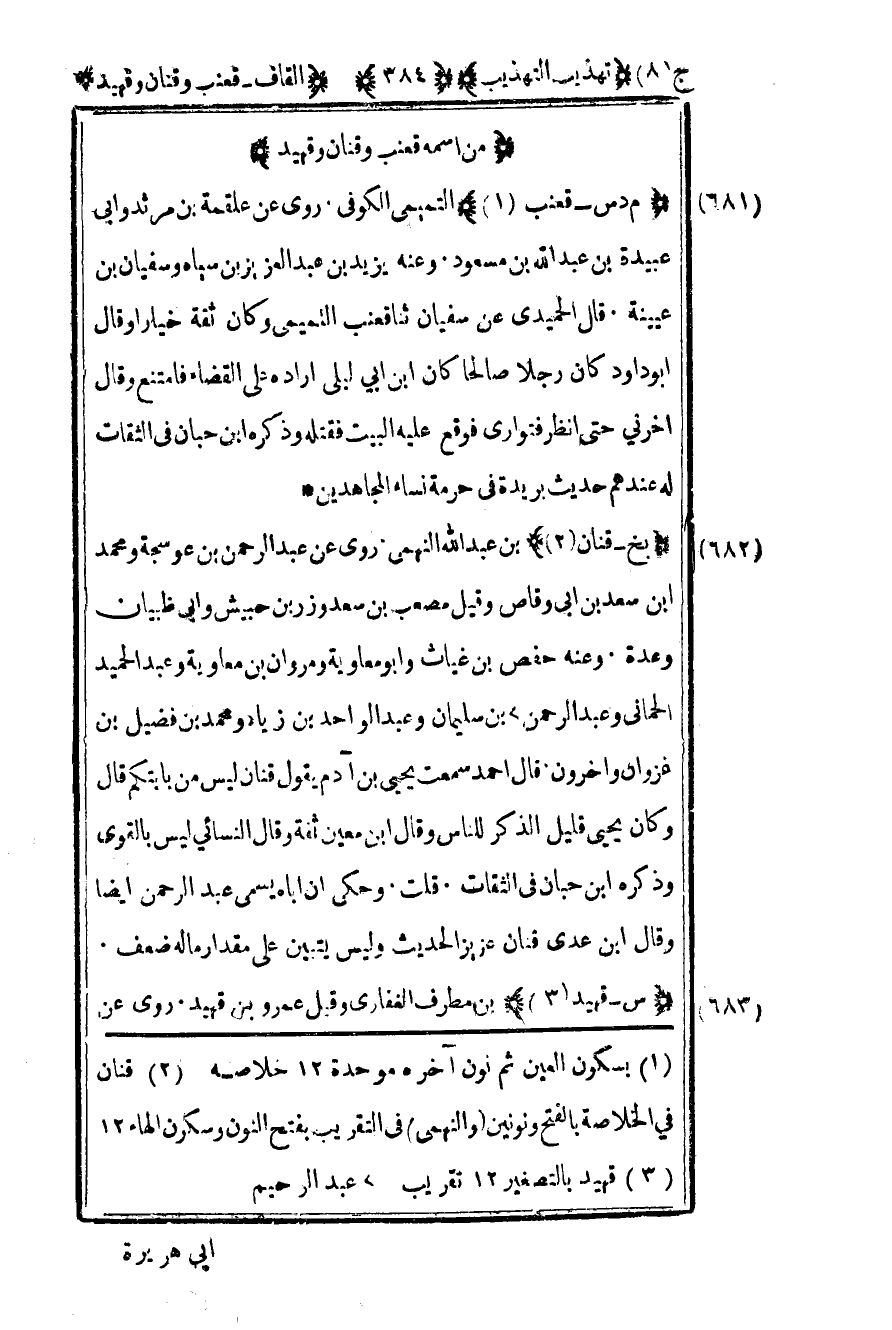 ج(٨) ﴿تهذيب التهذيب﴾ ﴿٣٨٤﴾ ﴿القاف ـ قعنب وقنان وقهيد﴾
﴿من اسمه قعنب وقنان وقهيد﴾
(٦٨١) ﴿م د س ـ قعنب (١)﴾ التميمى الكوفى ٠ روى عن علقمة بن مرثد وابى
عبيدة بن عبدالله بن مسعود ٠ وعنه يزيد بن عبدالعزيز بن سياه وسفيان بن
عيينة ٠ قال الحميدى عن سفيان ثنا قعنب التميمى وكان ثقة خيارا وقال
ابوداود كان رجلا صالحا كان ابن ابي ليلى اراده على القضاء فامتنع وقال
اخرني حتى انظر فتوارى فوقع عليه البيت فقتله وذكره ابن حبان فى الثقات
له عندهم حديث بريدة فى حرمة نساء المجاهدين *
(٦٨٢) ﴿بخ ـ قنان (٢)﴾ بن عبدالله النهمى ٠ روى عن عبدالرحمن بن عوسجة ومحمد
ابن سعد بن ابى وقاص وقيل مصعب بن سعد وزر بن حبيش وابي ظبيان
وعدة ٠ وعنه حفص بن غياث وابومعاوية ومروان بن معاوية وعبدالحميد
الحمانى وعبدالرحمن > بن سليمان وعبدالواحد بن زياد ومحمد بن فضيل بن
غزوان واخرون ٠ قال احمد سمعت يحيى بن آدم يقول قنان ليس من بابتكم قال
وكان يحيى قليل الذكر للناس وقال ابن معين ثقة وقال النسائي ليس بالقوى
وذكره ابن حبان فى الثقات ٠ قلت ٠ وحكى ان اباه يسمى عبد الرحمن ايضا
وقال ابن عدى قنان عزيز الحديث وليس يتبين على مقدار ماله ضعف ٠
(٦٨٣) ﴿س ـ قهيد (٣)﴾ بن مطرف الغفارى وقيل عمرو بن قهيد ٠ روى عن
(١) بسكون العين ثم نون آخره موحدة ١٢ خلاصه (٢) قنان
في الخلاصة بالفتح ونونين (والنهمى) فى التقريب بفتح النون وسكون الهاء ١٢
(٣) قهيد بالتصغير ١٢ تقريب > عبد الرحيم
ابي هريرة